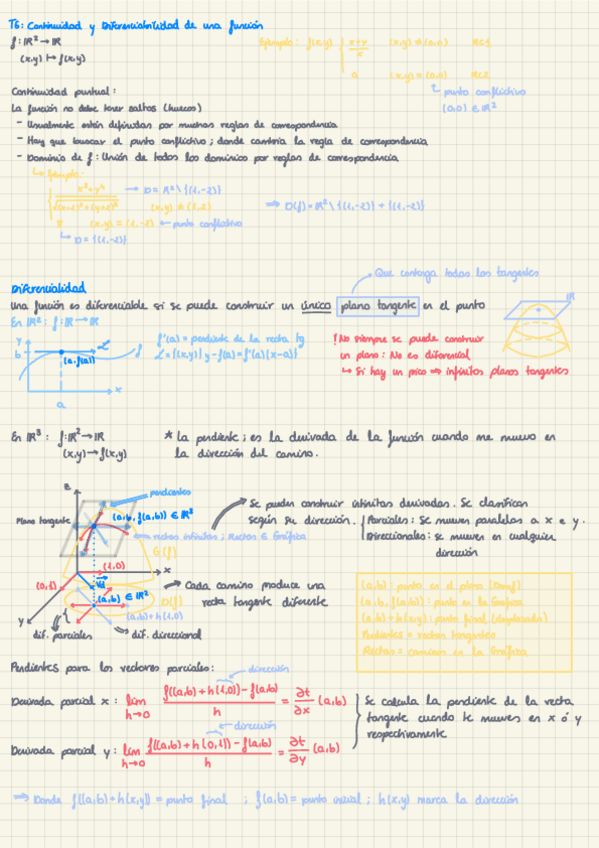 T6: Continuidad y Diferenciabilidad de una función
f: IR² → IR
(x,y) ↦ f(x,y)
Ejemplo: f(x,y) { x+y/x (x,y) ≠ (0,0) RC1
0 (x,y) = (0,0) RC2
punto conflictivo
(0,0) ∈ IR²
Continuidad puntual:
La función no debe tener saltos (huecos)
- Usualmente están definidas por muchas reglas de correspondencia
- Hay que buscar el punto conflictivo; donde cambia la regla de correspondencia
- Dominio de f: Unión de todos los dominios por reglas de correspondencia
↳ Ejemplo:
→ D = IR² \ {(1,-2)}
(x,y) ≠ (1,-2)
⇒ D(f) = IR² \ {(1,-2)} + {(1,-2)}
(x,y) = (1,-2) ← punto conflictivo
↳ D = {(1,-2)}
Diferencialidad
Que contenga todas las tangentes
Una función es diferenciable si se puede construir un único plano tangente en el punto
IR
En IR²: f: IR → IR
y
b
(a, f(a))
L
f
x
a
f'(a) = pendiente de la recta tg
L = {(x,y) | y - f(a) = f'(a)(x-a)}
! No siempre se puede construir
un plano: No es diferencial
↳ Si hay un pico ⇒ infinitos planos tangentes
En IR³: f: IR² → IR
(x,y) → f(x,y)
* La pendiente; es la derivada de la función cuando me muevo en
la dirección del camino.
z
pendientes
Plano tangente
(a,b, f(a,b)) ∈ IR³
rectas infinitas; rectas ∈ Gráfica
G(f)
(1,0)
x
(0,1)
(a,b) ∈ IR²
D(f)
(a,b)+h(1,0)
y
dif. parciales
dif. direccional
Se pueden construir infinitas derivadas. Se clasifican
según su dirección.
Parciales: Se mueven paralelas a x e y.
Direccionales: se mueven en cualquier
dirección
→ Cada camino produce una
recta tangente diferente
(a,b): punto en el plano (Domf)
(a,b, f(a,b)): punto en la Gráfica
(a,b)+h(x,y): punto final (desplazado)
Pendientes = rectas tangentes
Rectas = caminos en la Gráfica
Pendientes para los vectores parciales:
dirección
Derivada parcial x: lim h→0 f((a,b)+h(1,0))-f(a,b) / h = ∂f/∂x (a,b)
dirección
Derivada parcial y: lim h→0 f((a,b)+h(0,1))-f(a,b) / h = ∂f/∂y (a,b)
Se calcula la pendiente de la recta
tangente cuando te mueves en x ó y
respectivamente
⇒ Donde f((a,b)+h(x,y)) = punto final ; f(a,b) = punto inicial ; h(x,y) marca la dirección